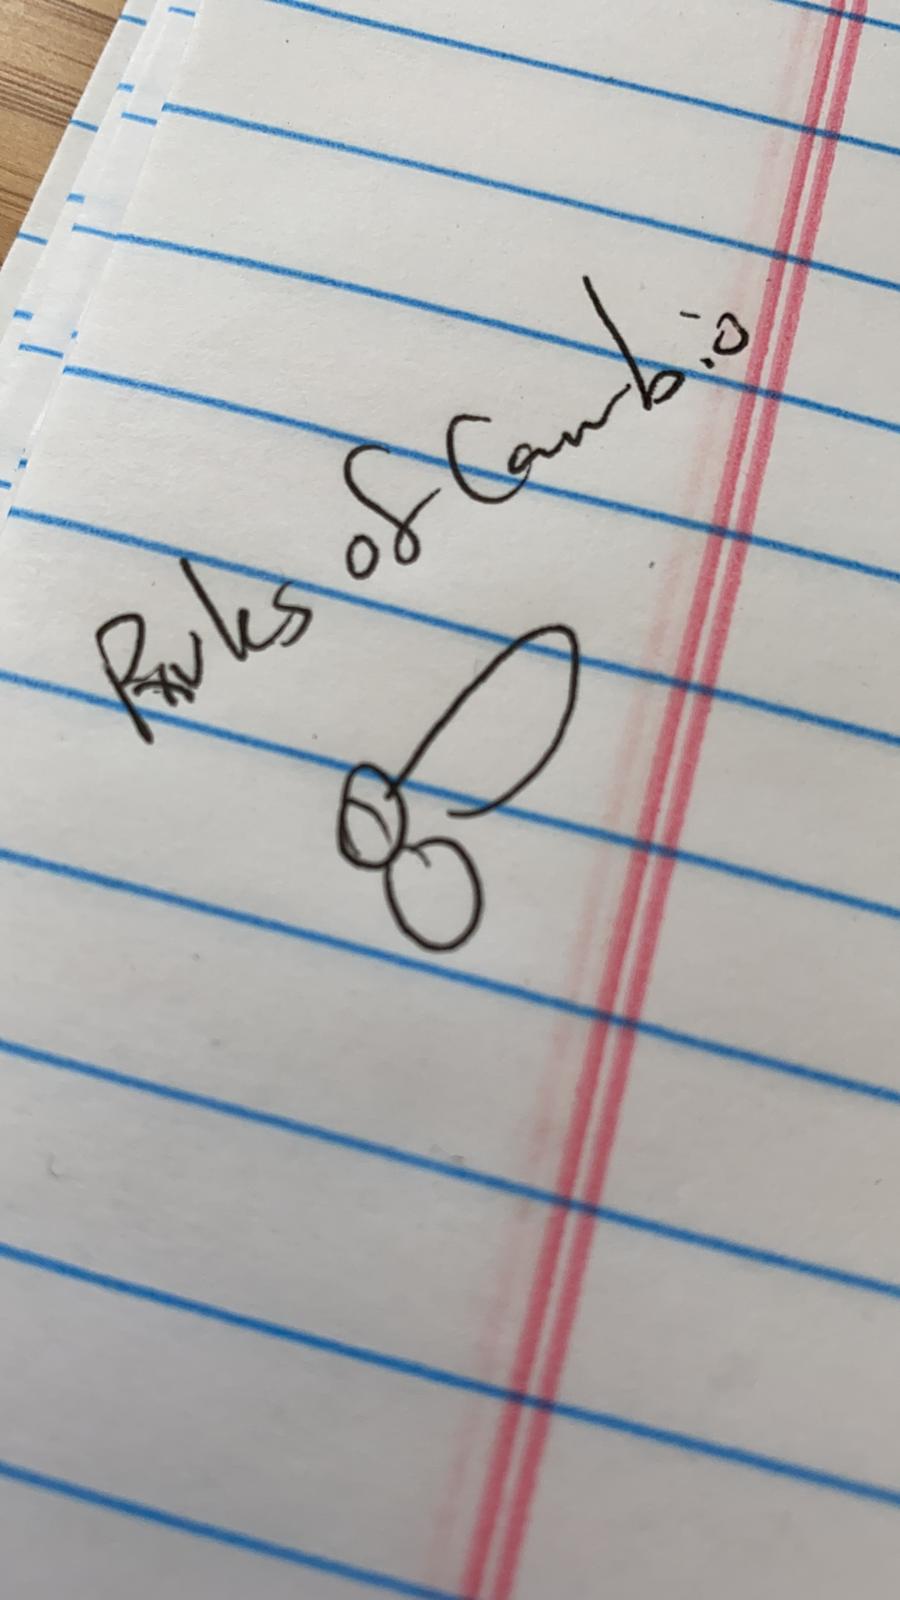 Rules of Cambio